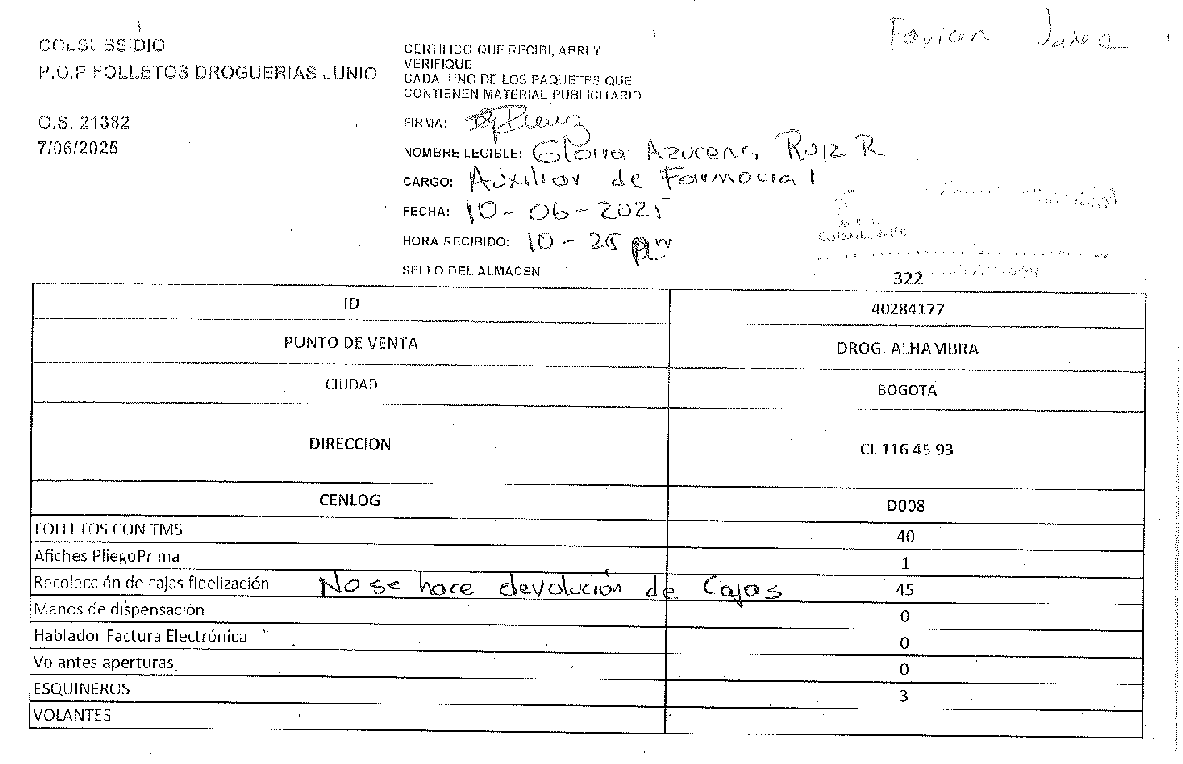 COLSUBSIDIO
P.O.P FOLLETOS DROGUERIAS JUNIO
O.S. 21382
7/06/2025
CERTIFICO QUE RECIBI, ABRI Y
VERIFIQUE
CADA UNO DE LOS PAQUETES QUE
CONTIENEN MATERIAL PUBLICITARIO
FIRMA:
NOMBRE LEGIBLE: Gloria Azucena Ruiz R
CARGO: Auxiliar de Farmacia 1
FECHA: 10-06-2025
HORA RECIBIDO: 10-25
SELLO DEL ALMACEN
322
ID 40284177
PUNTO DE VENTA DROG. ALHAMBRA
CIUDAD BOGOTA
DIRECCION CL 116 45 93
CENLOG D008
FOLLETOS CON TMS 40
Afiches PliegoPrima 1
Recolección de cajas fidelización No se hace devolución de Cajas 45
Manos de dispensación 0
Hablador Factura Electrónica 0
Volantes aperturas 0
ESQUINEROS 3
VOLANTES